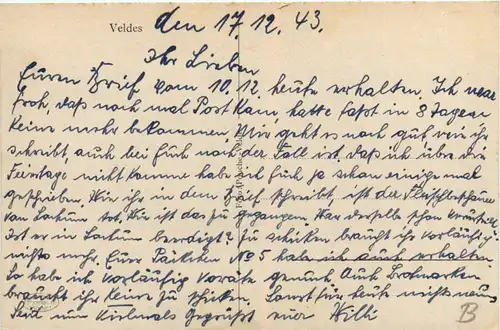 Veldes den 17.12.43.
Ihr Lieben
Euren Brief vom 10.12. heute erhalten. Ich war
froh, daß noch mal Post kam, hatte fasst in 8 Tagen
keine mehr bekommen Mir geht es noch gut, wie ihr
schreibt, auch bei Euch noch der Fall ist, daß ich über die
Feiertage nicht komme habe ich Euch ja schon einige mal
geschrieben. Wie ihr in dem Brief schreibt, ist der
von Lockum tot. Wie ist das zu gegangen. War derselbe schon
Ist er in Lockum beerdigt? Zu schiken braucht ihr vorläufig
nichts mehr. Euer Päikchen No 5 habe ich auch erhalten
So habe ich vorläufig Voräte genuch. Auch Brotmarken
braucht ihr keine zu schiken. Sonst für heute nichts neues
Seit nun vielmals Gegrüßt euer Willi
B